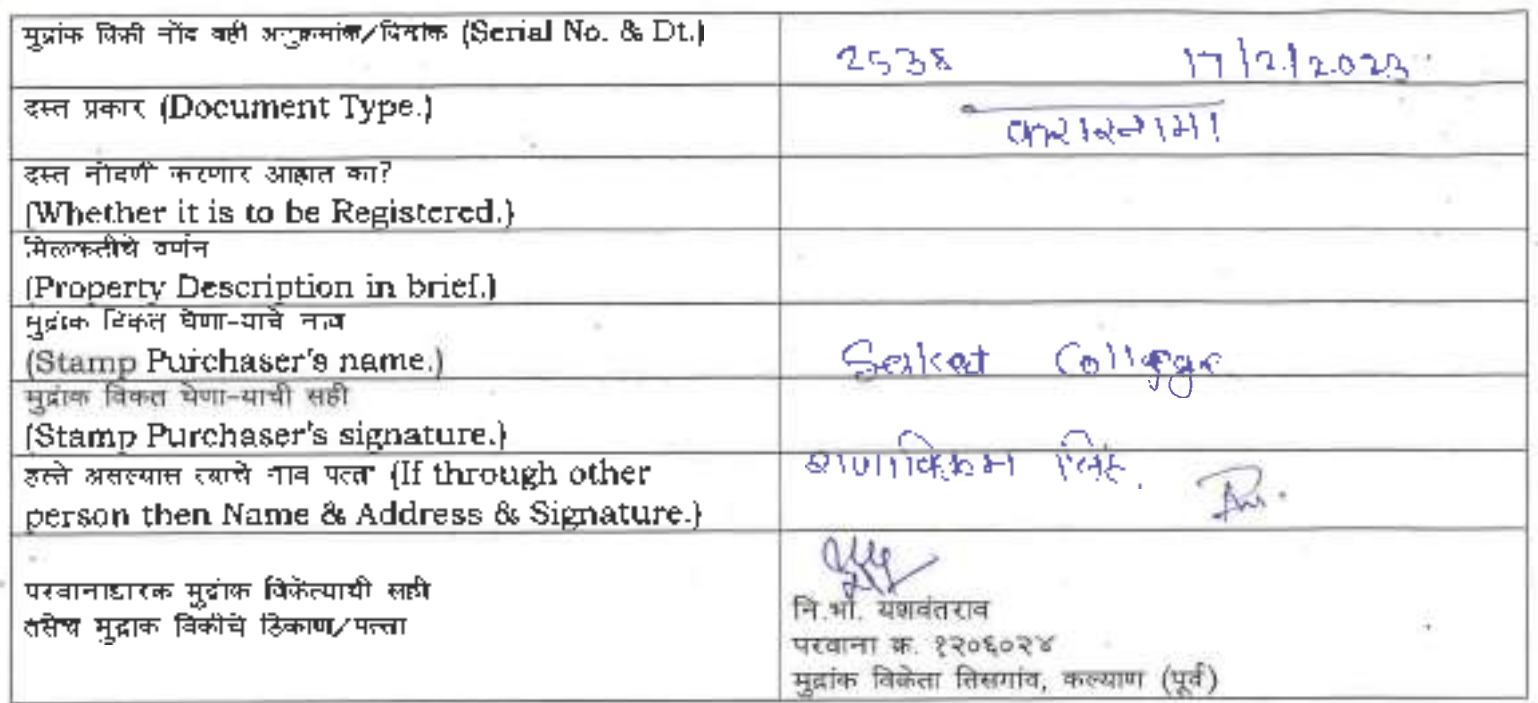 मुद्रांक विक्री नोंद वही अनुक्रमांक/दिनांक (Serial No. & Dt.)
17/2/2023
दस्त प्रकार (Document Type.)
करारनामा
दस्त नोंदणी करणार आहात का?
(Whether it is to be Registered.)
मिळकतीचे वर्णन
(Property Description in brief.)
मुद्रांक विकत घेणा-याचे नाव
(Stamp Purchaser's name.)
Seiket College
मुद्रांक विकत घेणा-याची सही
(Stamp Purchaser's signature.)
हस्ते असल्यास त्याचे नाव पत्ता (If through other
person then Name & Address & Signature.)
सिंह.
परवानाधारक मुद्रांक विक्रेत्याची सही
तसेच मुद्रांक विक्रीचे ठिकाण/पत्ता
नि.भों. यशवंतराव
परवाना क्र. १२०६०२४
मुद्रांक विक्रेता तिसगांव, कल्याण (पूर्व)